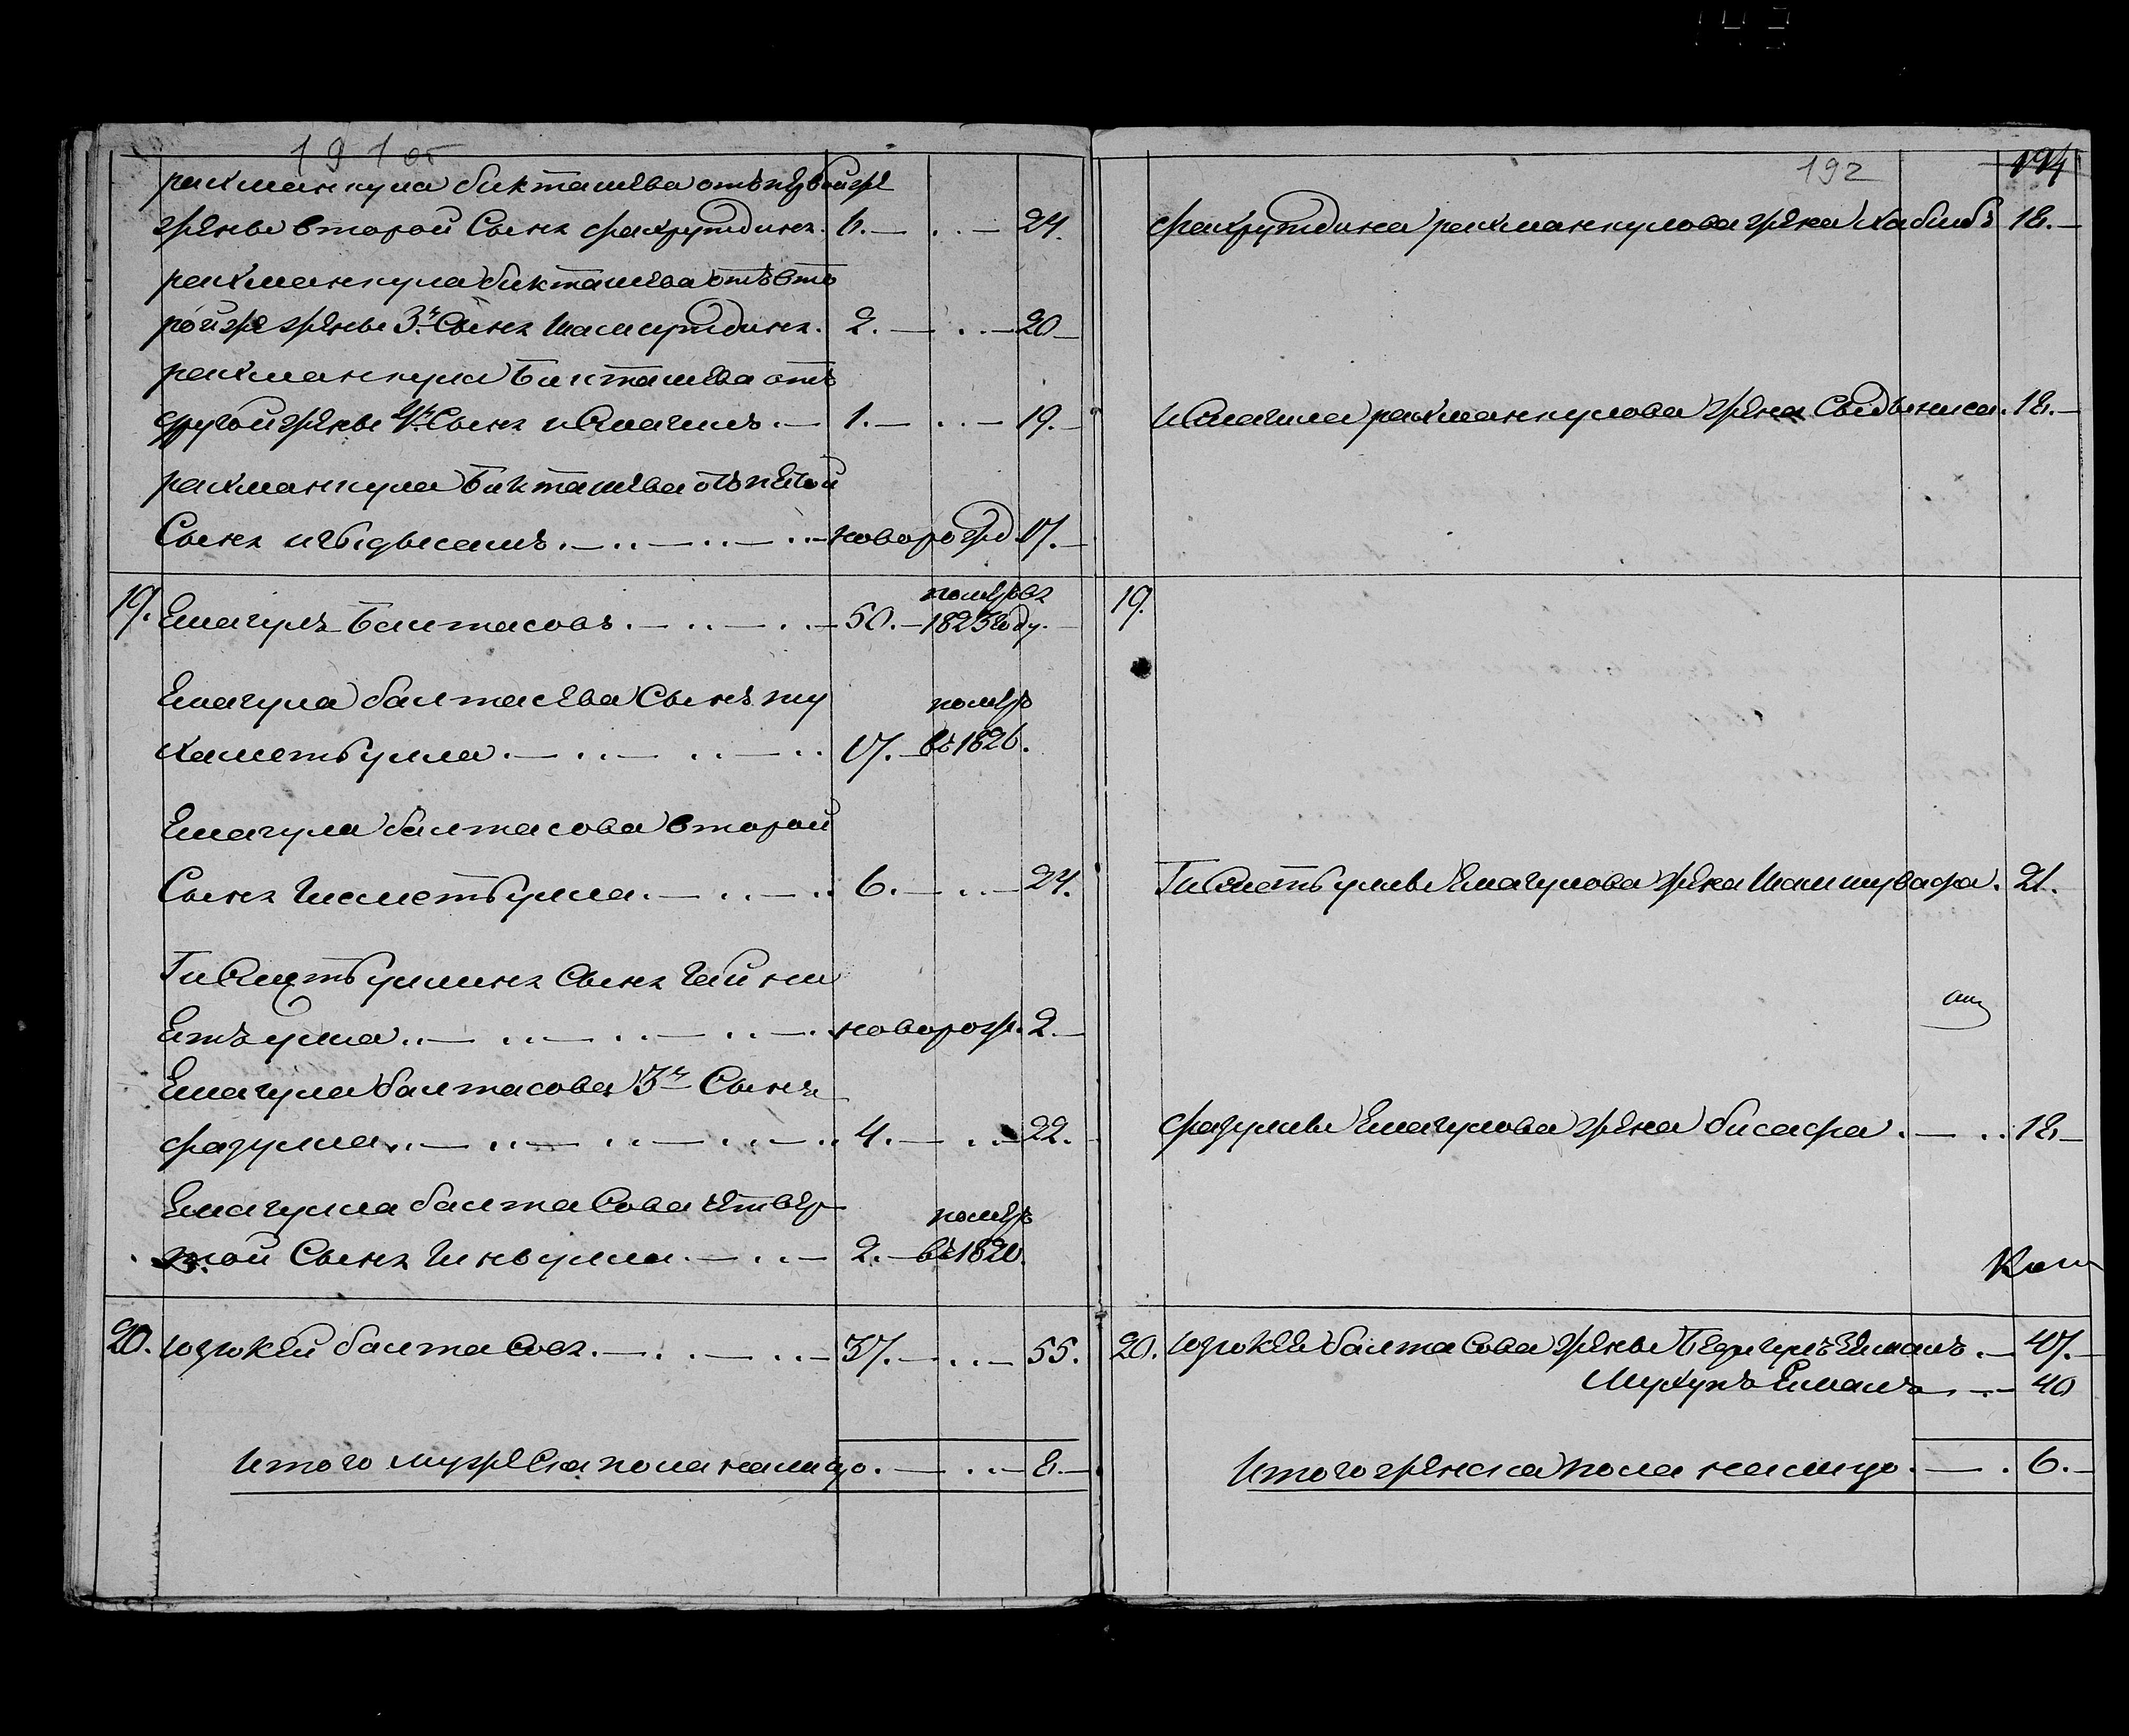 191 об
рахманкула бикташева отъ первой же
жены второй Сынъ фахрутдинъ. 6. 24.
рахманкула бикташева отъ вто
рой же жены 3й Сынъ Шамсутдинъ. 2. 20
рахманкула Бикташева отъ
другой жены 4й Сынъ исмагилъ. 1. 19.
рахманкула Бикташева отъ
Сынъ новорожд. 17.
19. Емагулъ Балтасовъ. 50. померъ въ
1823 году.
Емагула балтасева Сынъ му
хаметьулла. 17. померъ въ 1826.
Емагула балтасова второй
Сынъ 6. 24.
Сынъ
етъулла новорож. 2.
Емагула балтасова 3й Сынъ
фазулла 4. 22.
Емагулла балтасова четвер
той Сынъ 2. померъ въ
20. юзюкей балтасовъ. 37. 55.
Итого мужеска пола налицо. 8.
192
194
фахрутдина рахманкулова жена Хабиба 18.
исмагила рахманкулова жена 18.
19.
Емагулова жена 21.
фазуллы Емагулова жена бисафа 18
20. юзюкея балтасова жены 47.
40
Итого женска пола налицо. 6.